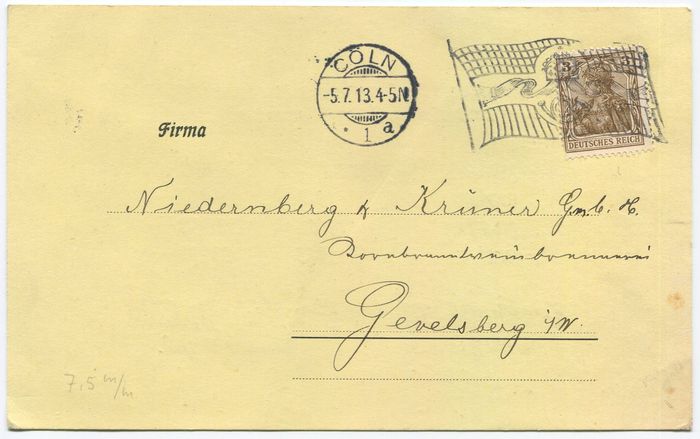 CÖLN
-5.7.13.4-5N
* 1 a
3
DEUTSCHES REICH
Firma
Niedernberg & Krüner G.m.b.H.
Kornbranntweinbrennerei
Gevelsberg i/W.
7,5 m/m